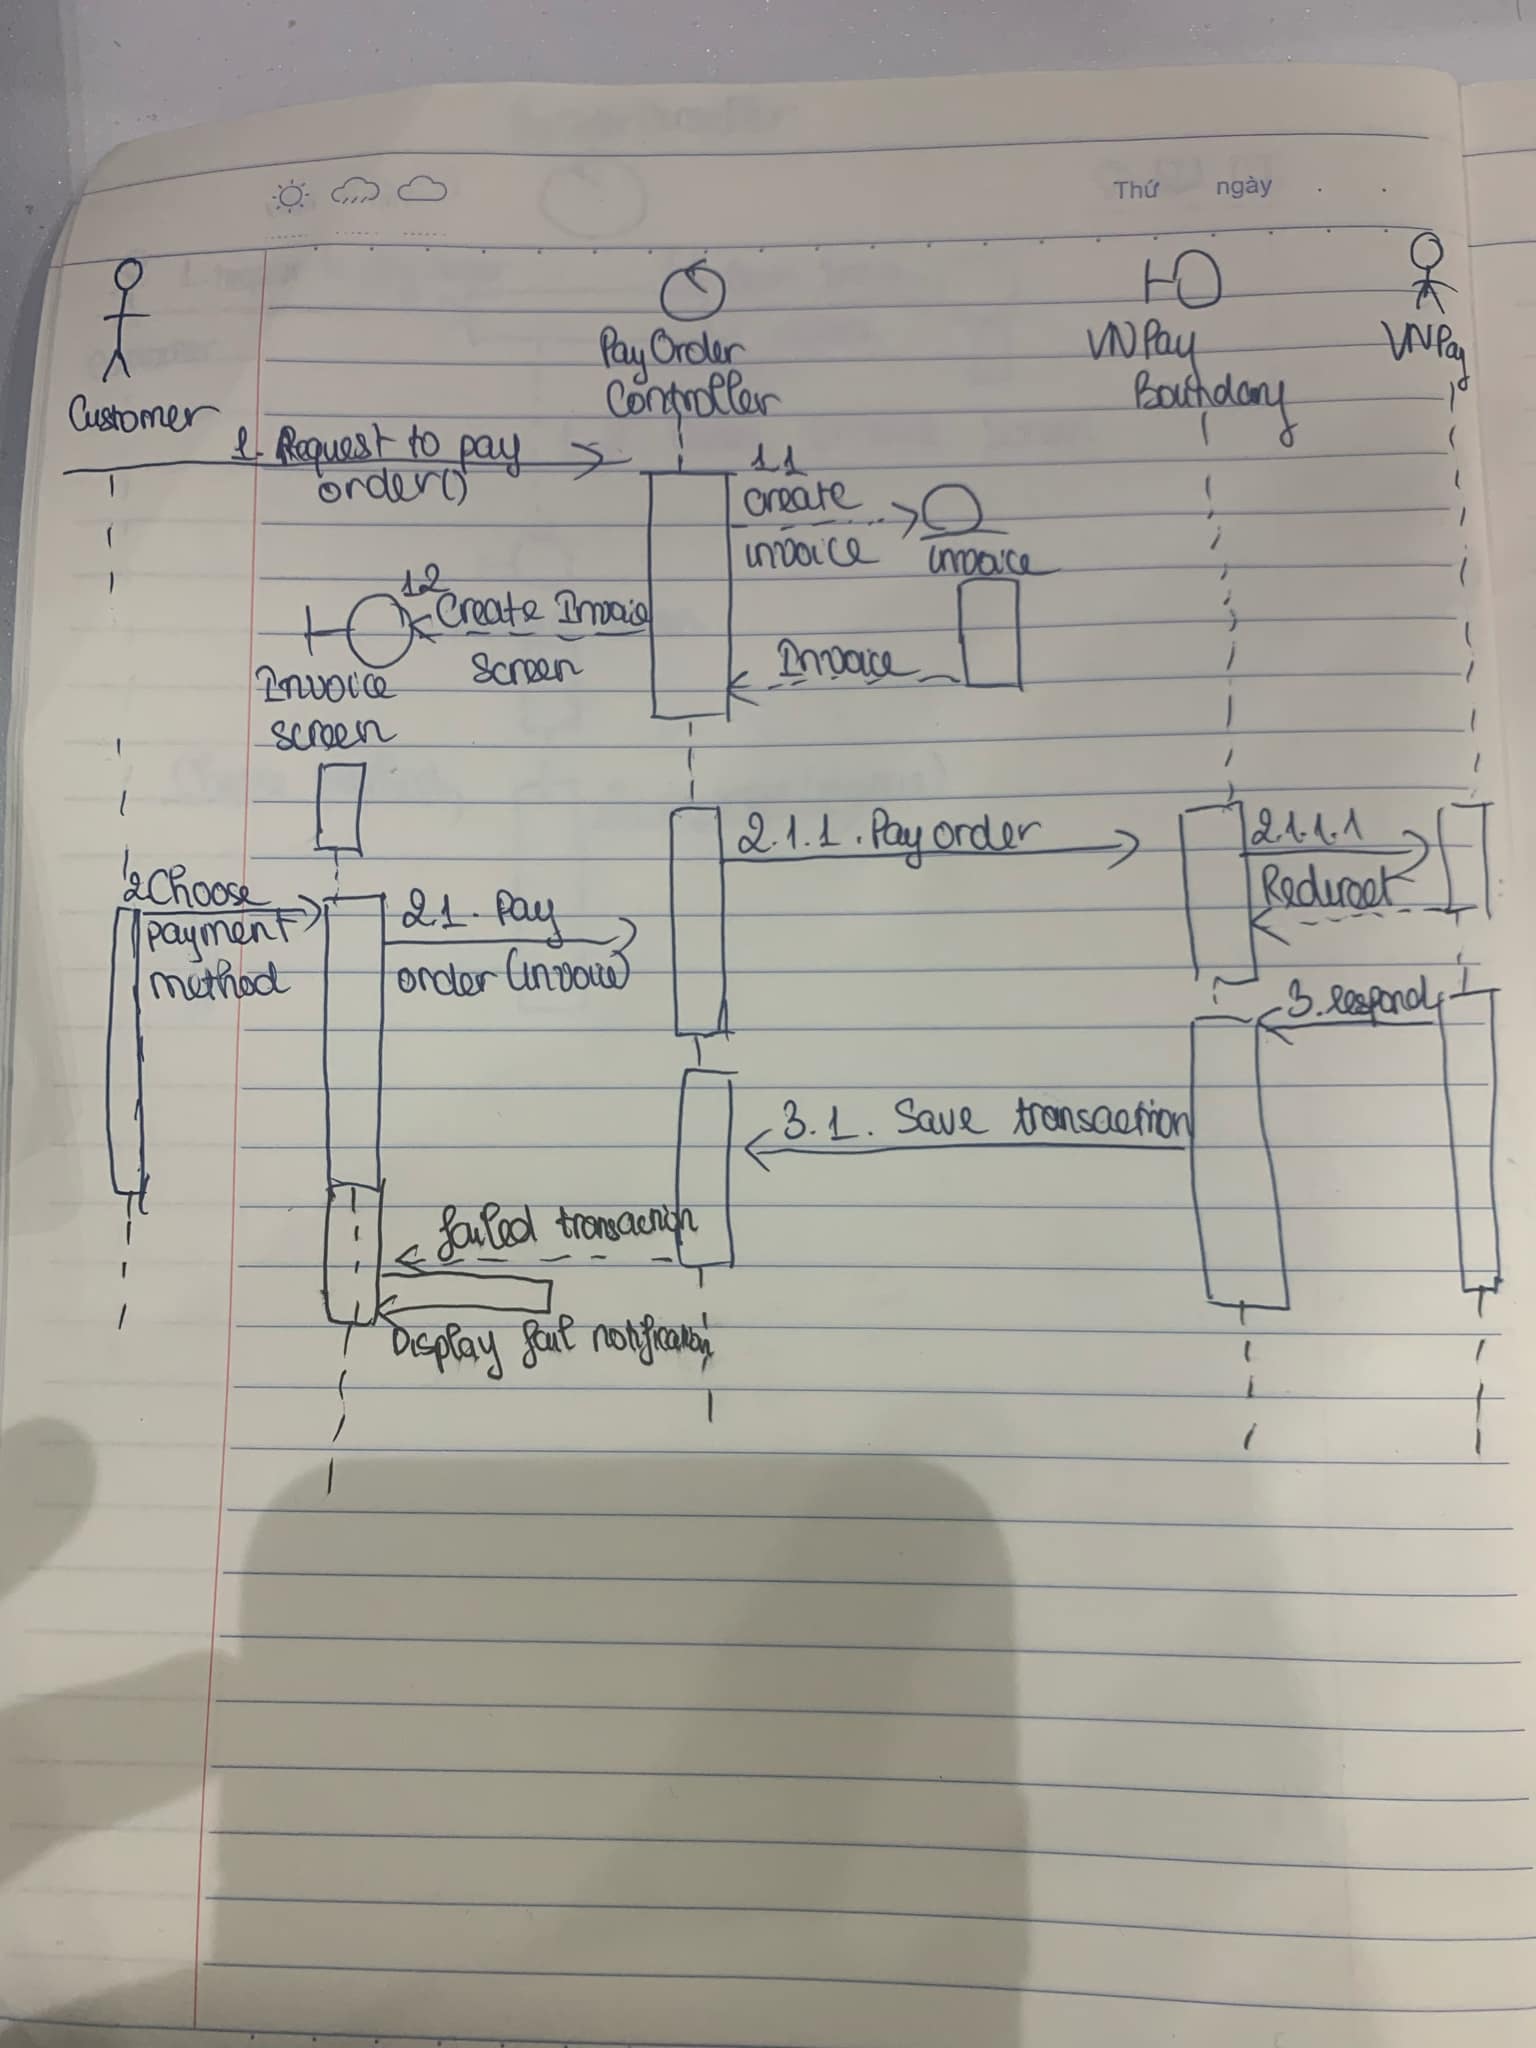 Thứ ngày
Customer
Pay Order
Controller
VNPay
Boundary
VNPay
1. Request to pay
order()
1.1
create
invoice
invoice
1.2
Create Invoice
screen
Invoice
screen
Invoice
2 Choose
payment
method
2.1. Pay
order (invoice)
2.1.1. Pay order
2.1.1.1
Redirect
3. respond
3.1. Save transaction
failed transaction
Display fail notification